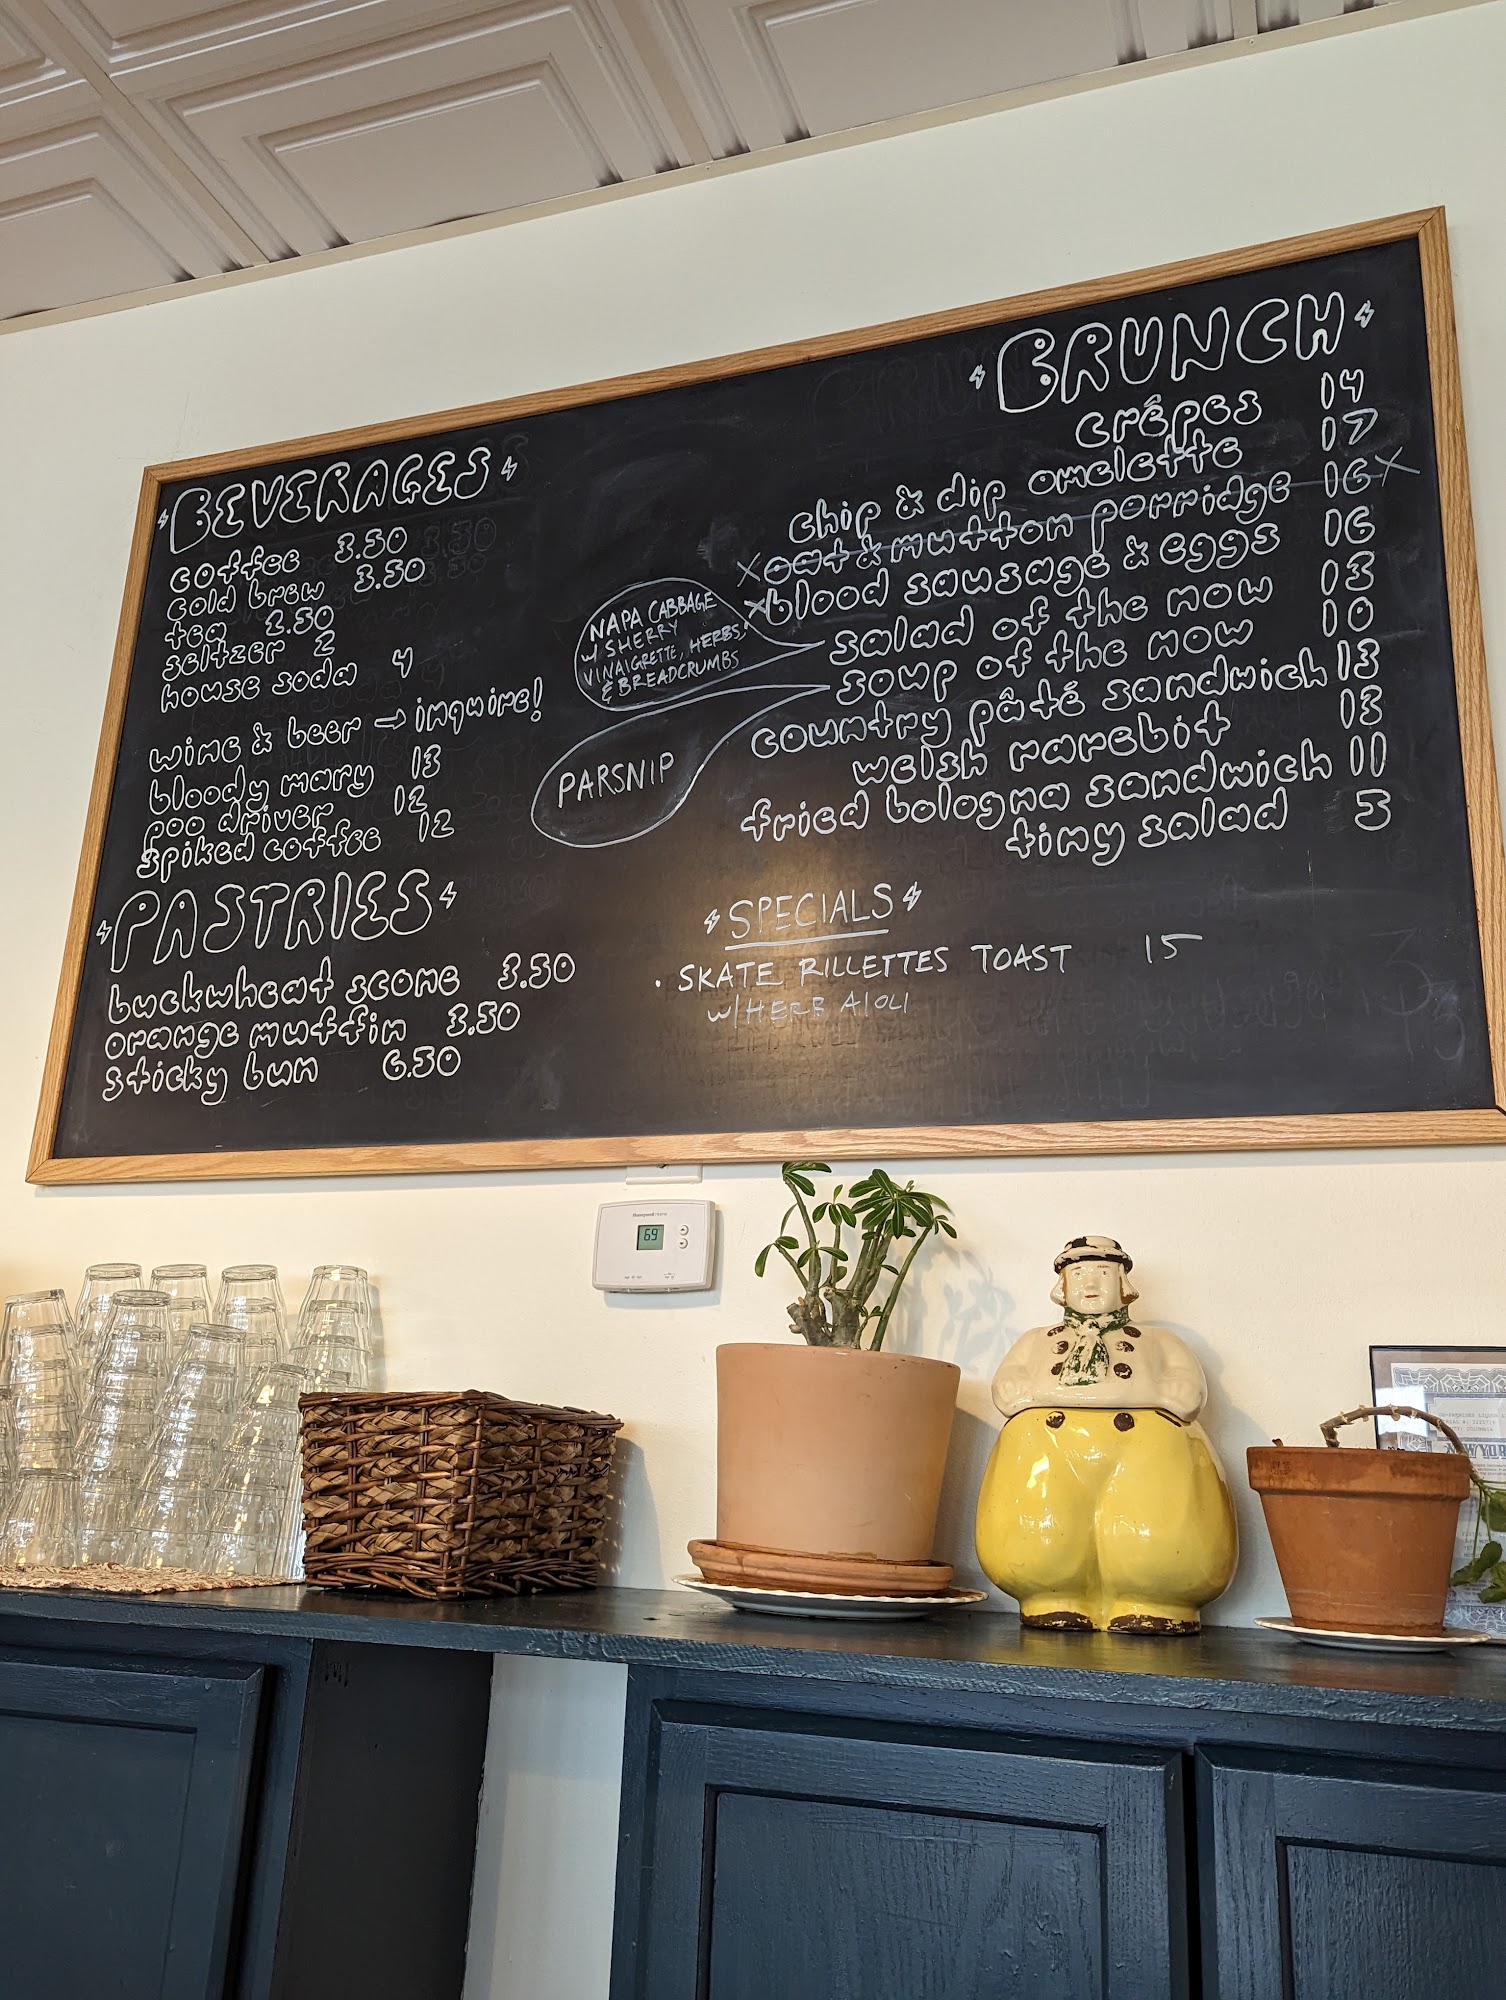 BEVERAGES
coffee 3.50
cold brew 3.50
tea 2.50
seltzer 2
house soda 4
wine & beer → inquire!
bloody mary 13
poo driver 12
spiked coffee 12
PASTRIES
buckwheat scone 3.50
orange muffin 3.50
sticky bun 6.50
BRUNCH
crêpes 14
chip & dip omelette 17
x oat & mutton porridge 16 x
x blood sausage & eggs 16
salad of the now 13
soup of the now 10
country pâté sandwich 13
welsh rarebit 13
fried bologna sandwich 11
tiny salad 5
NAPA CABBAGE
w/ SHERRY
VINAIGRETTE, HERBS,
& BREADCRUMBS
PARSNIP
SPECIALS
• SKATE RILLETTES TOAST 15
w/ HERB AIOLI
Honeywell Home
69